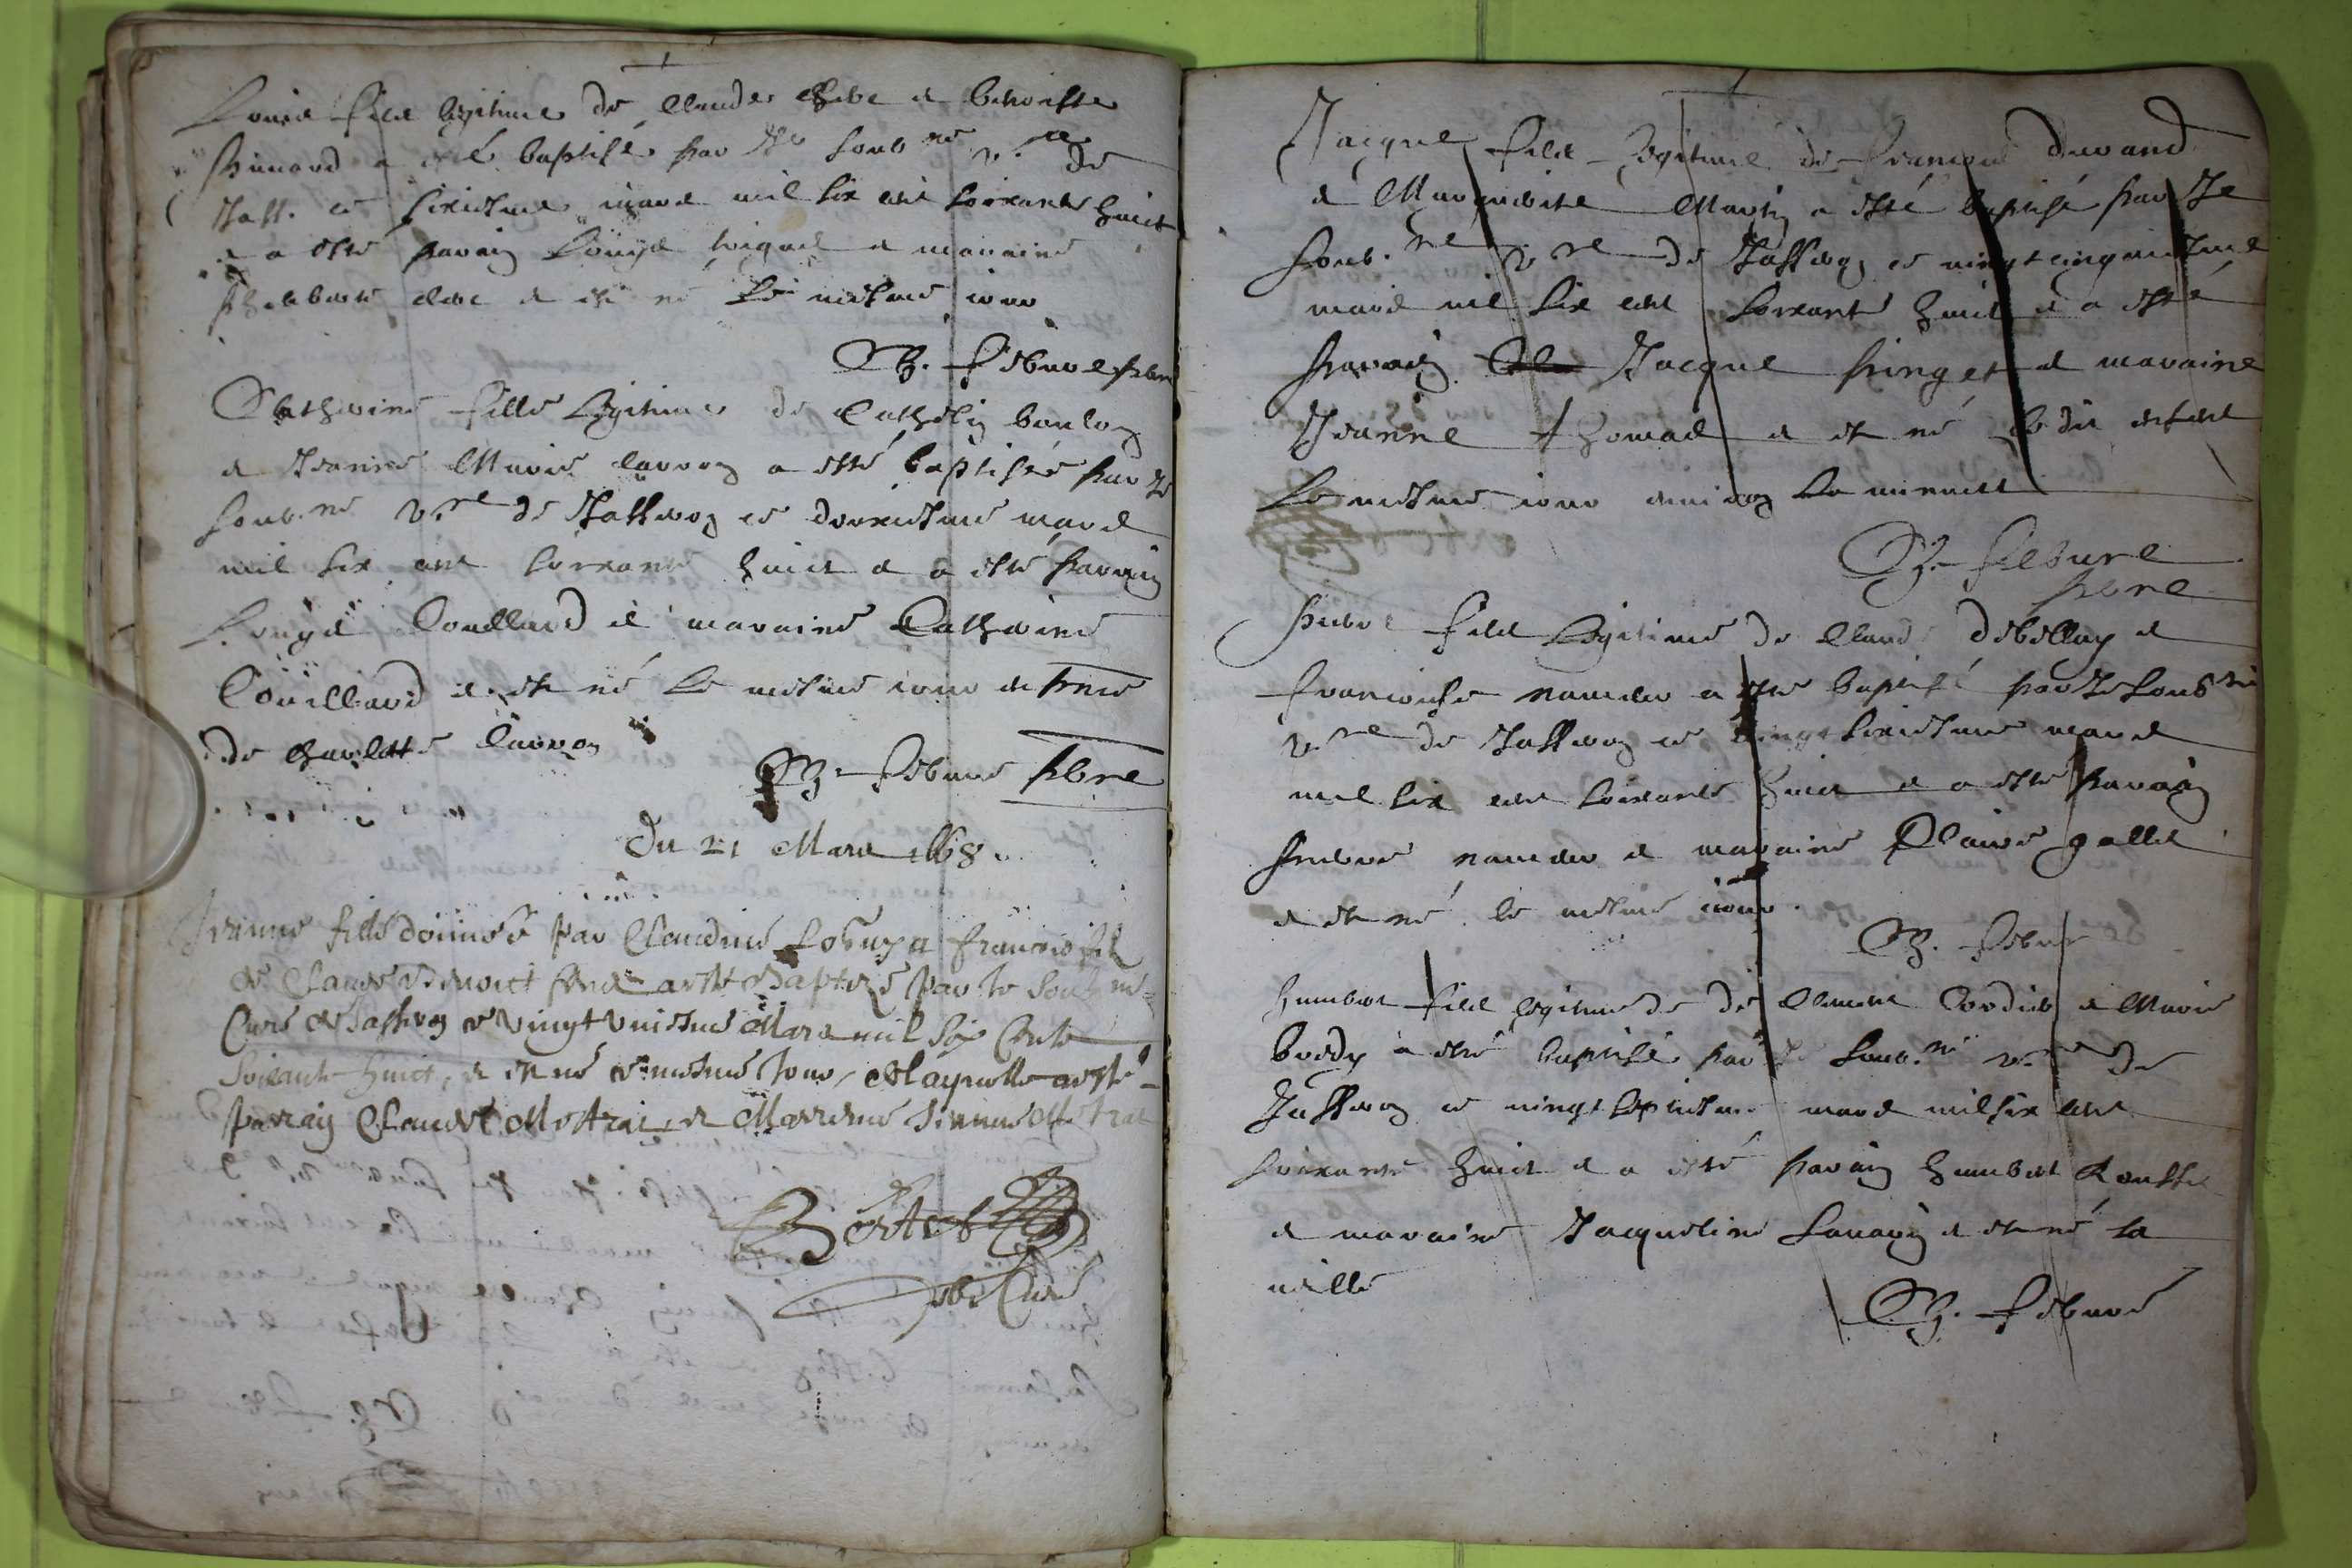 Louis filz legitime de Claude et benoiste
a esté baptisé par Je soub.né v.re de
Jass. ce sixiesme mars mil six cent soixante huict
et a esté parain Louys et maraine
et est né le mesme jour
B. Febure pbre
Catherine fille legitime de Cathelin
et Jeanne Marie Carron a esté baptisée par Je
soub.né v.re de Jasseron ce douxiesme mars
mil six cent soixante huict et a esté parain
Louys Couillard et maraine Catherine
Couillard et est né le mesme jour
de charlotte Carron
B. Febure pbre
Du 21 Mars 1668.
Jeanne fille donnée par Claudine a francois filz
de Claude benoict a esté Baptizé par le soubné
Curé de Jasseron ce vingt uniesme Mars mil six Cents
soixante huict, et est né ce mesme Jour, A laquelle a esté
parain Claude Mestrai, et Marrine Jeanne Mestrai
pbr Curé
Jacque filz legitime de francois durand
et Marguerite Martin a esté baptisé par Je
soub.né v.re de Jasseron ce vingt cinquiesme
mars mil six cent soixante huict et a esté
parain Jacque pinget et maraine
Jeanne thomas et est né le dit enfant
le mesme jour environ la minuict
B. Febure
pbre
pierre filz legitime de Claude debellay et
francoise a esté baptisé par Je soubné
v.re de Jasseron ce vingt sixiesme mars
mil six cent soixante huict et a esté parain
pierre et maraine Claire gallet
et est né le mesme jour.
B. Febure
humbert filz legitime de de Clement Cordier et Marie
a esté baptisé par Je soub.né v.re de
Jasseron ce vingt septiesme mars mil six cent
soixante huict et a esté parain humbert
et maraine Jacqueline et est né la
veille
B. Febure